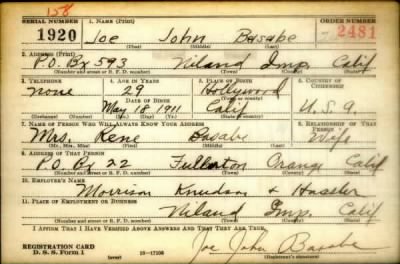 158
SERIAL NUMBER 1. NAME (Print) ORDER NUMBER
1920 Joe John Basabe 2481
(First) (Middle) (Last)
2. ADDRESS (Print)
P.O. Bx 593 Niland Imp. Calif
(Number and street or R. F. D. number) (Town) (County) (State)
3. TELEPHONE 4. AGE IN YEARS 5. PLACE OF BIRTH 6. COUNTRY OF CITIZENSHIP
none 29 Hollywood
DATE OF BIRTH
May 18 1911 Calif U.S.A.
7. NAME OF PERSON WHO WILL ALWAYS KNOW YOUR ADDRESS 8. RELATIONSHIP OF THAT PERSON
Mrs. Rene Basabe Wife
(Mr., Mrs., Miss) (First) (Middle) (Last)
9. ADDRESS OF THAT PERSON
P.O. Bx 22 Fullerton Orange Calif
(Number and street or R. F. D. number) (Town) (County) (State)
10. EMPLOYER'S NAME
Morrison Knudson & Hassler
11. PLACE OF EMPLOYMENT OR BUSINESS
Niland Imp. Calif
(Number and street or R. F. D. number) (Town) (County) (State)
I AFFIRM THAT I HAVE VERIFIED ABOVE ANSWERS AND THAT THEY ARE TRUE.
REGISTRATION CARD
D. S. S. Form 1 (over) Joe John Basabe
(Registrant's signature)